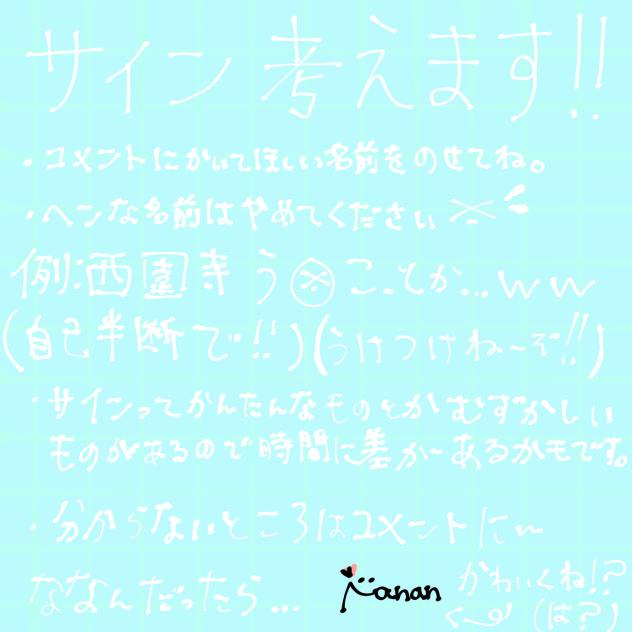 サイン考えます!!
・コメントにかいてほしい名前をのせてね。
・ヘンな名前はやめてください
例:西園寺う※こ..とか...ww
(自己半断で!!)(うけつけね〜ぞ!!)
・サインってかんたんなものとかむずかしい
ものがあるので時間に差が〜あるかモです。
・分からないところはコメントに〜
ななんだったら... Nanan かわいくね!?
(は?)